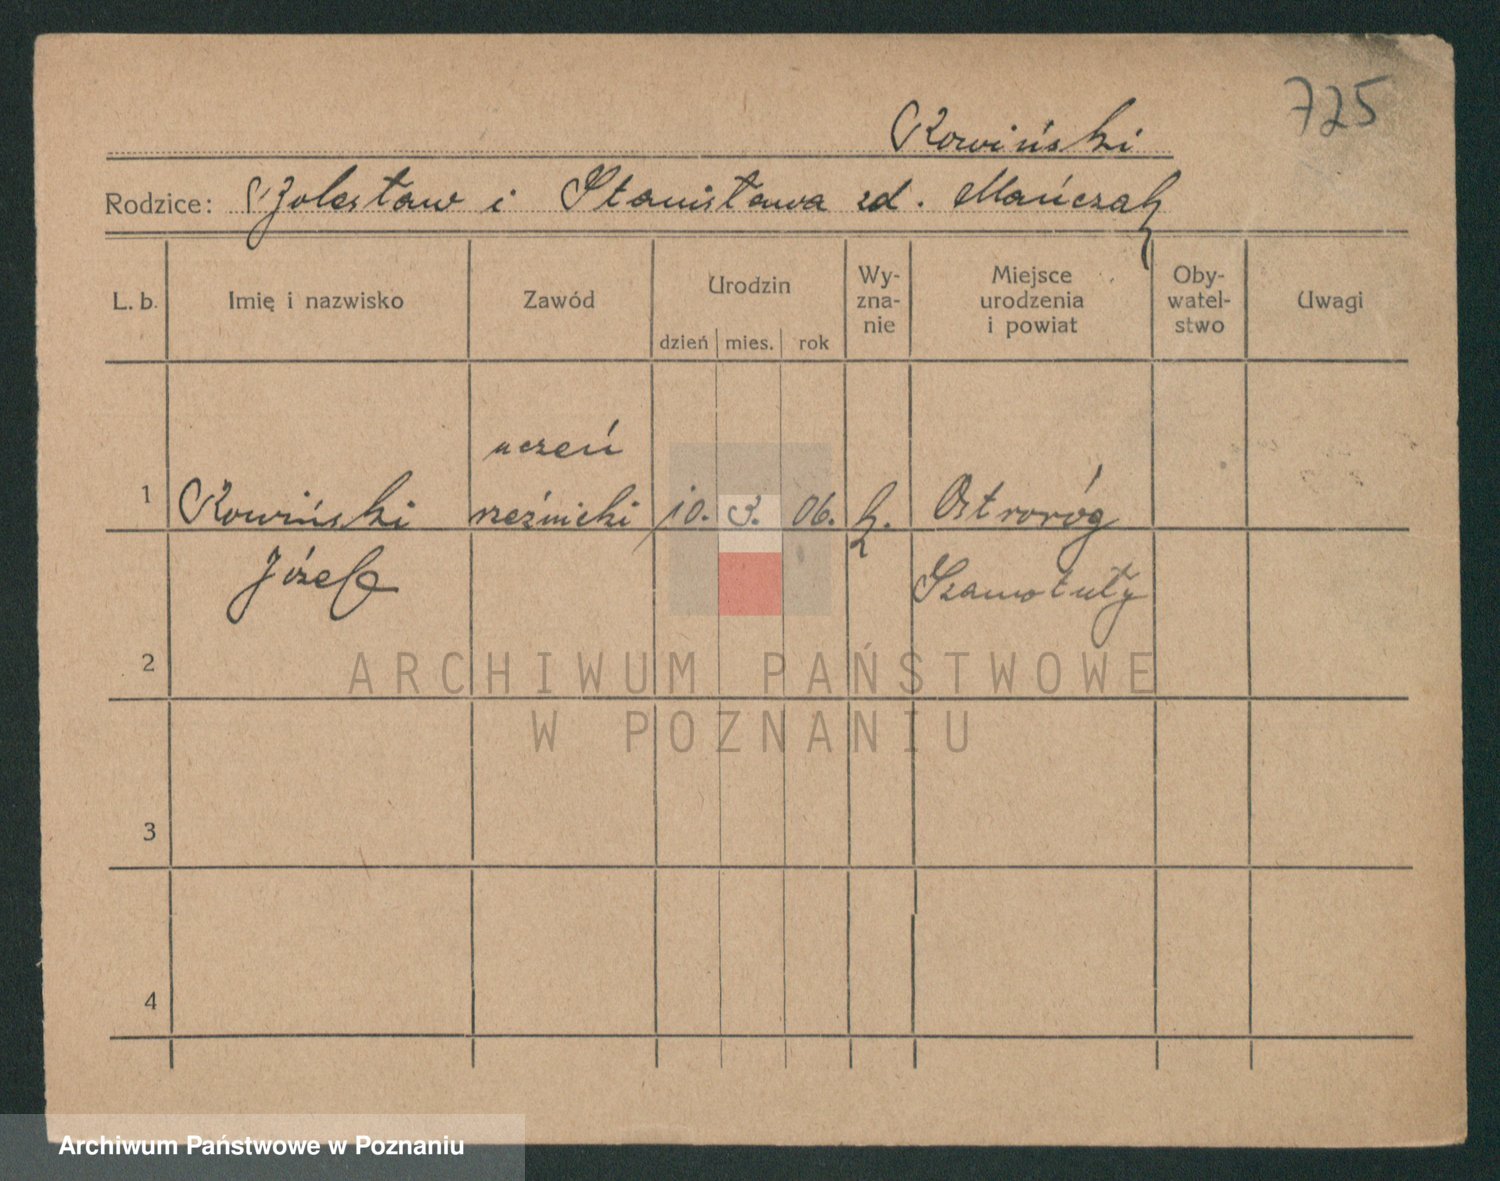 725
Kowiński
Rodzice: Bolesław i Stanisława zd. Mańczak
L. b. Imię i nazwisko Zawód Urodzin dzień mies. rok Wy-zna-nie Miejsce urodzenia i powiat Oby-watel-stwo Uwagi
uczeń
1 Kowiński rzeźnicki 10. 3. 06. k. Ostroróg
Józef Szamotuły
2
ARCHIWUM PAŃSTWOWE
W POZNANIU
3
4
Archiwum Państwowe w Poznaniu